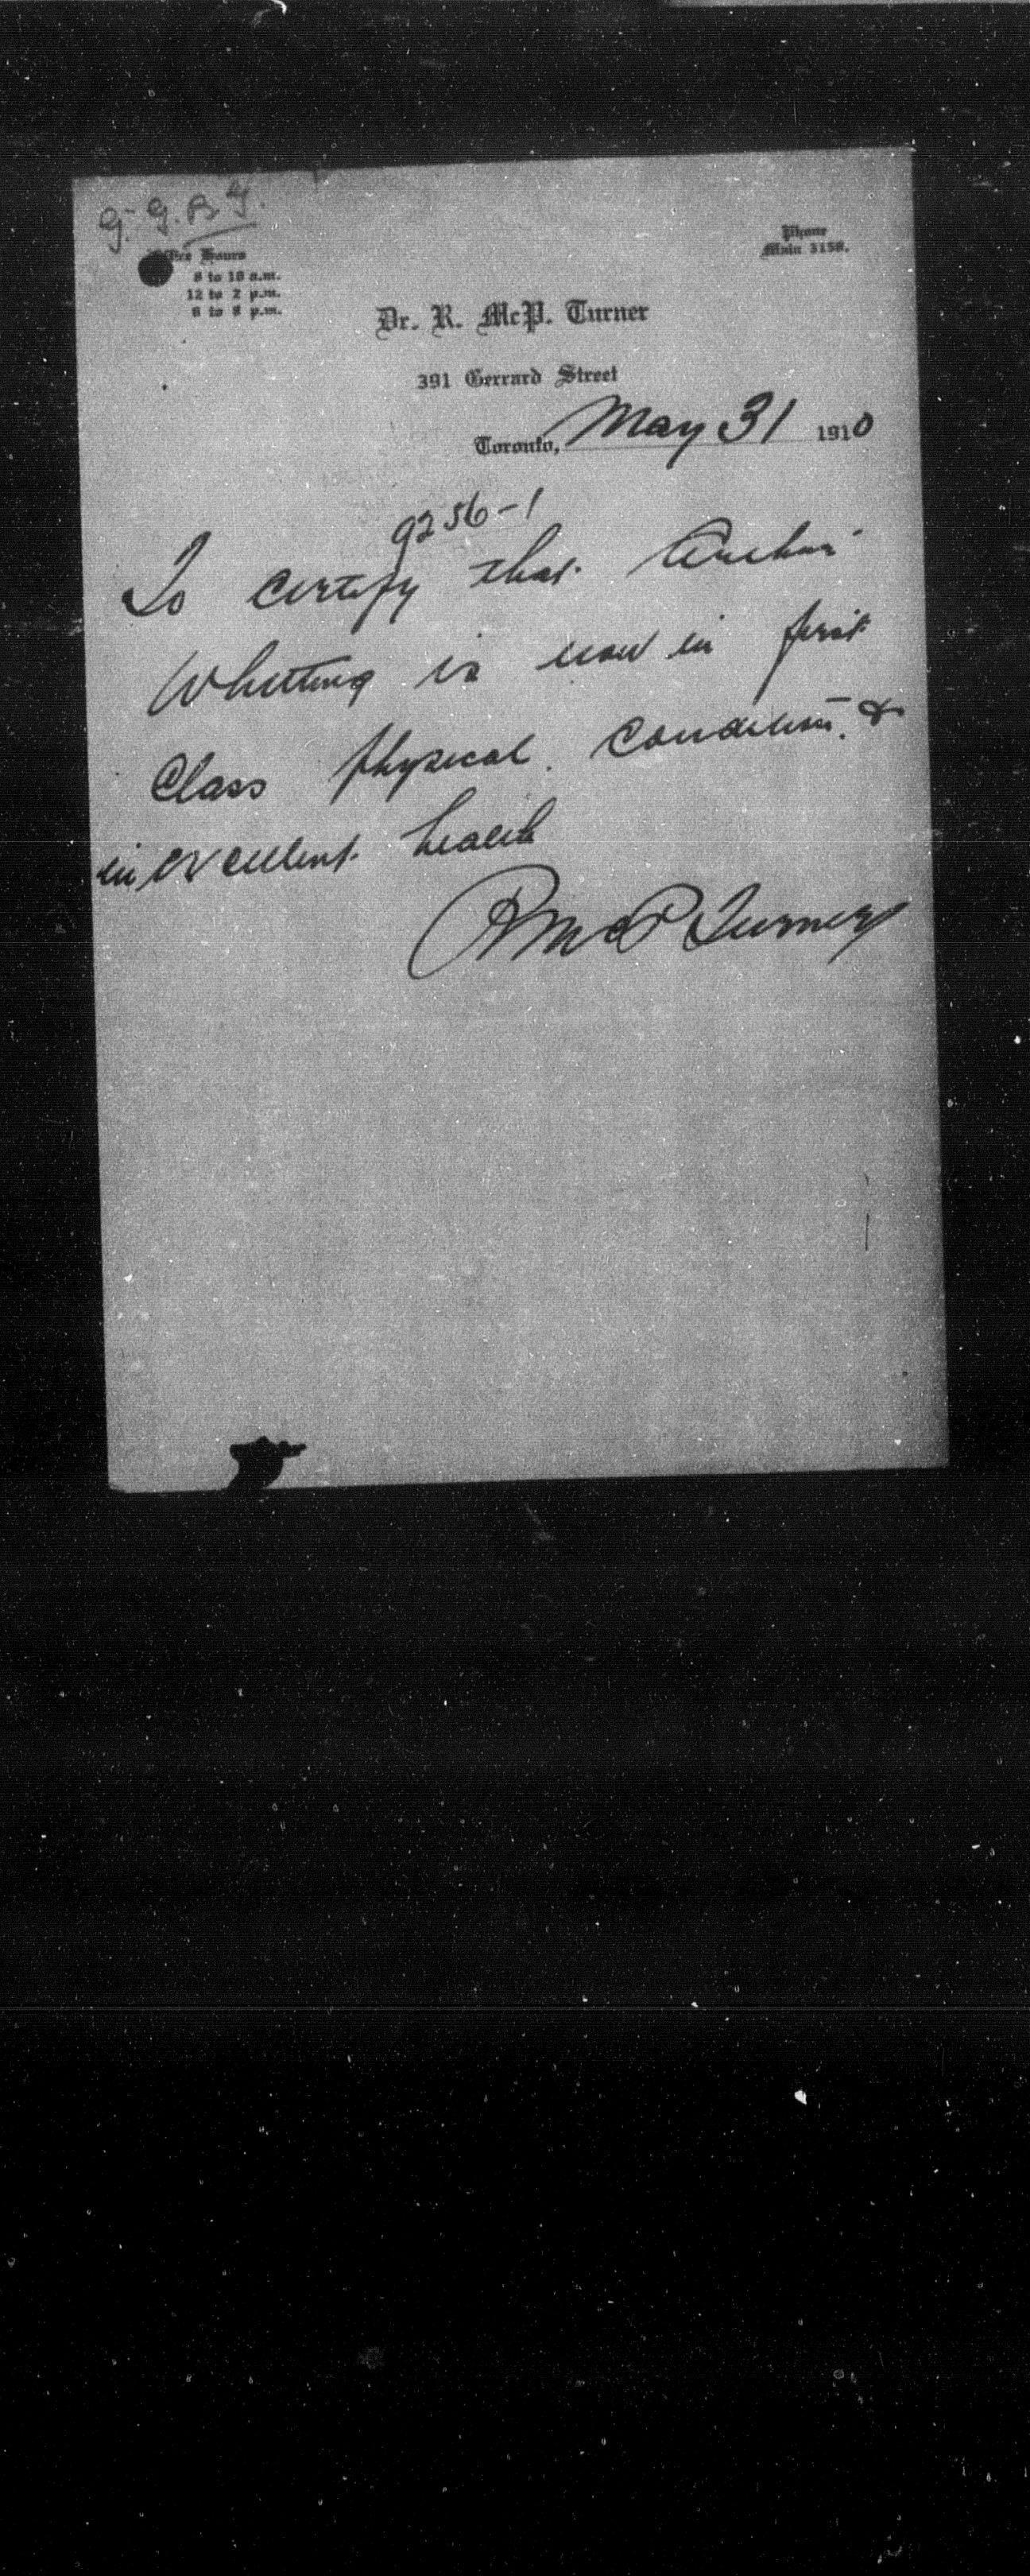 G. G. B. G.
Office Hours
8 to 10 a.m.
12 to 2 p.m.
6 to 8 p.m.
Phone
Main 3158.
Dr. R. McP. Turner
391 Gerrard Street
Toronto, May 31 1910
9256-1
To certify that Arthur
Whitting is now in first
Class physical condition &
in excellent health
R McP Turner